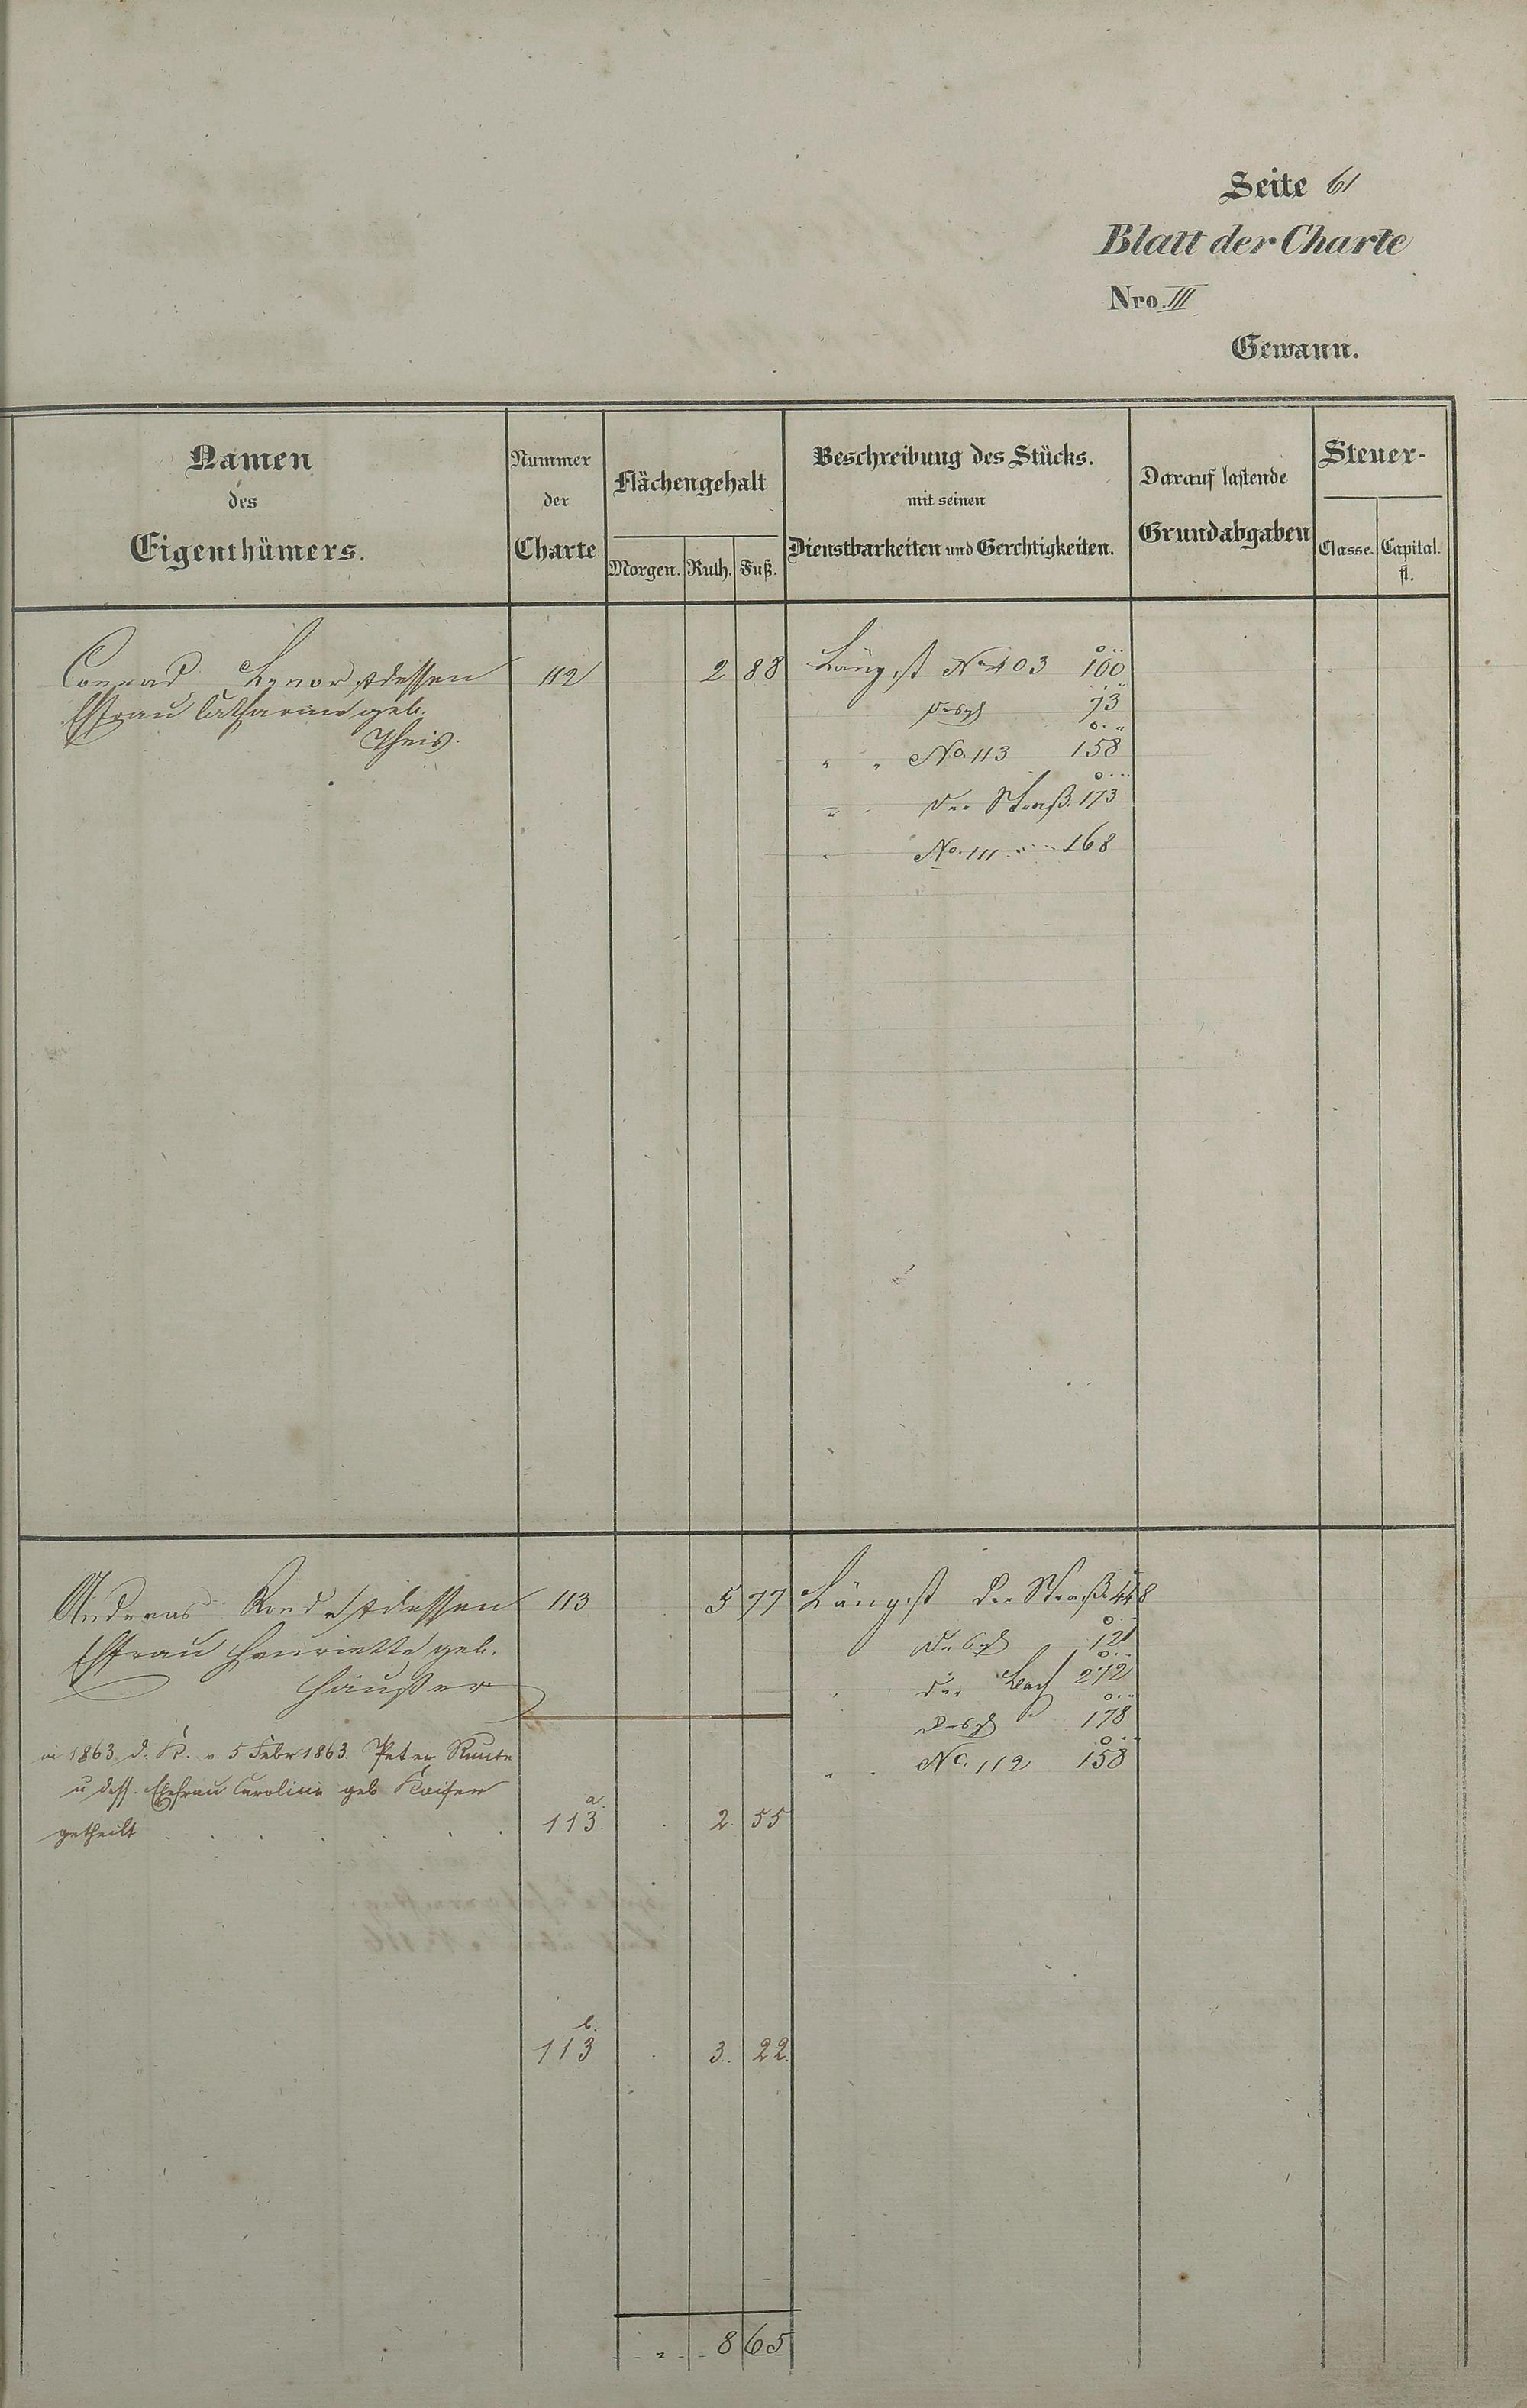 Seite 61
Blatt der Charte
Nro. III
Gewann.
Namen
des
Eigenthümers.
Nummer
der
Charte
Flächengehalt
Morgen. Ruth. Fuß.
Beschreibung des Stücks.
mit seinen
Dienstbarkeiten und Gerechtigkeiten.
Darauf lastende
Grundabgaben
Steuer-
Classe. Capital.
fl.
Conrad dessen 112 2 88 Längst No 103 100
Ehfrau Catharine geb. dsgl 73
Theis.
" " No. 113 158
" der Straß. 173
No. 111 168
Andreas dessen 113 5 77 Längst der Straß 448
Ehfrau Henriette geb. dsgl 121
Häußer der Bach 272
dsgl 178
No. 112 158
in 1863 d. K. v. 5 Febr 1863. Peter
u dess. Ehefrau Caroline geb Kaiser
getheilt 113 a. 2. 55
113 b. 3. 22.
8 65